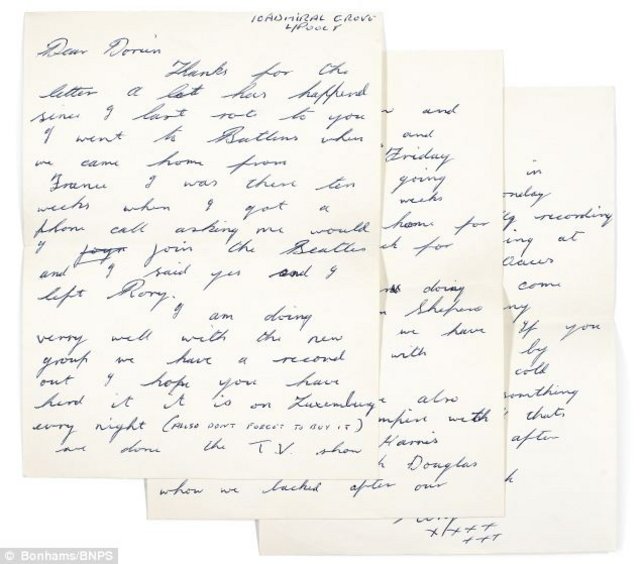 10 ADMIRAL GROVE
L/POOL 8
Dear Doreen
Thanks for the
letter a lot has happend
since I last rote to you
I went to Butlins when
we came home from
France I was there ten
weeks when I got a
phone call asking me would
I joyn join the Beatles
and I said yes and I
left Rory.
I am doing
verry well with the new
group we have a record
out I hope you have
herd it it is on Luxemburg
every night (ALSO DON'T FORGET TO BUY IT)
we done the T.V. show
and
and
Friday
going
weeks
home for
for
doing
Sheperd
we have
with
also
with
Harris
Douglas
whom we backed after our
in
recording
at
come
If you
by
cold
something
thats
after
x x x x
x x x
© Bonhams/BNPS